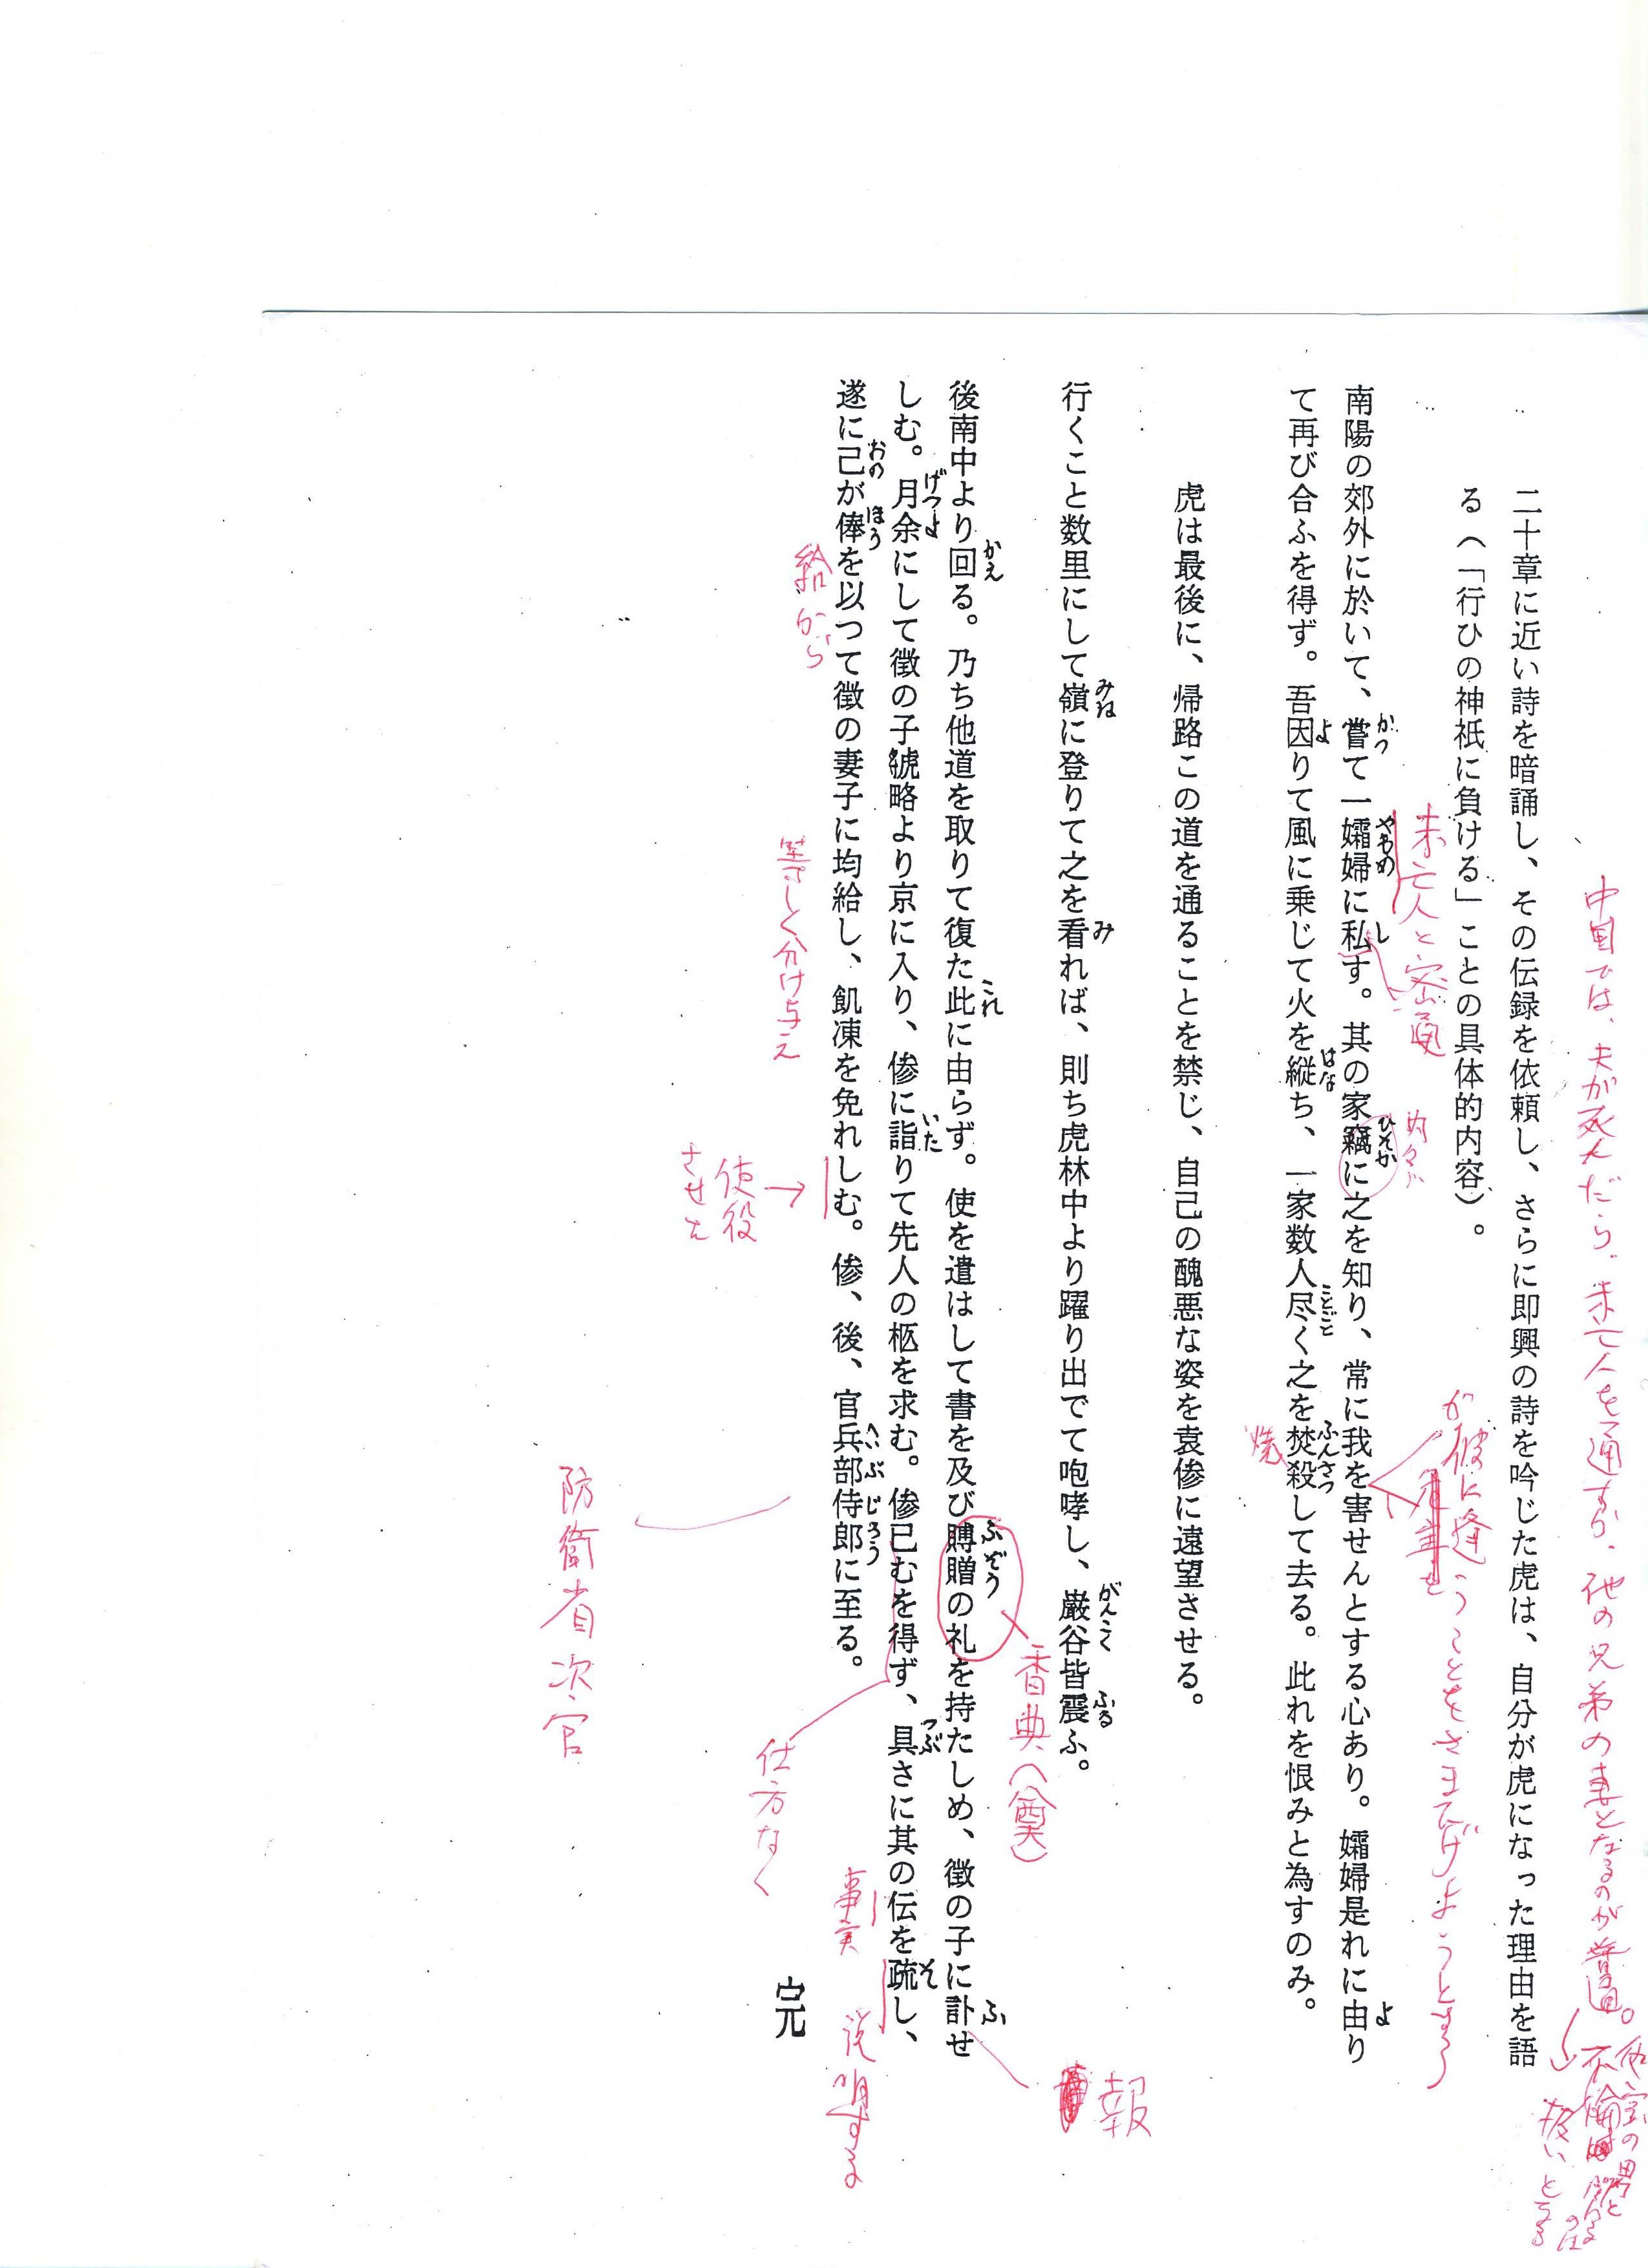 中国では、夫が死んだら、未亡人を通すか、他の兄弟の妻となるのが普通。
他家の男と
不倫
扱いとなる
二十章に近い詩を暗誦し、その伝録を依頼し、さらに即興の詩を吟じた虎は、自分が虎になった理由を語
る（「行ひの神祇に負ける」ことの具体的内容）。
未亡人と密通
内々に
が彼に逢うことをさまたげようとする
南陽の郊外に於いて、嘗て一孀婦に私す。其の家竊に之を知り、常に我を害せんとする心あり。孀婦是れに由り
かつ
やもめ
し
ひそか
よ
て再び合ふを得ず。吾因りて風に乗じて火を縦ち、一家数人尽く之を焚殺して去る。此れを恨みと為すのみ。
よ
はな
ことごと
ふんさつ
焼
虎は最後に、帰路この道を通ることを禁じ、自己の醜悪な姿を袁傪に遠望させる。
行くこと数里にして嶺に登りて之を看れば、則ち虎林中より躍り出でて咆哮し、巌谷皆震ふ。
みね
み
がんこく
ふる
報
香典（奠）
後南中より回る。乃ち他道を取りて復た此に由らず。使を遣はして書を及び賻贈の礼を持たしめ、徴の子に訃せ
かえ
これ
ふぞう
ふ
しむ。月余にして徴の子虢略より京に入り、傪に詣りて先人の柩を求む。傪已むを得ず、具さに其の伝を疏し、
げつよ
いた
つぶ
そ
仕方なく
事実
説明する
遂に己が俸を以つて徴の妻子に均給し、飢凍を免れしむ。傪、後、官兵部侍郎に至る。
おの
ほう
へいぶじろう
給から
等しく分け与え
使役
させた
防衛省次官
完